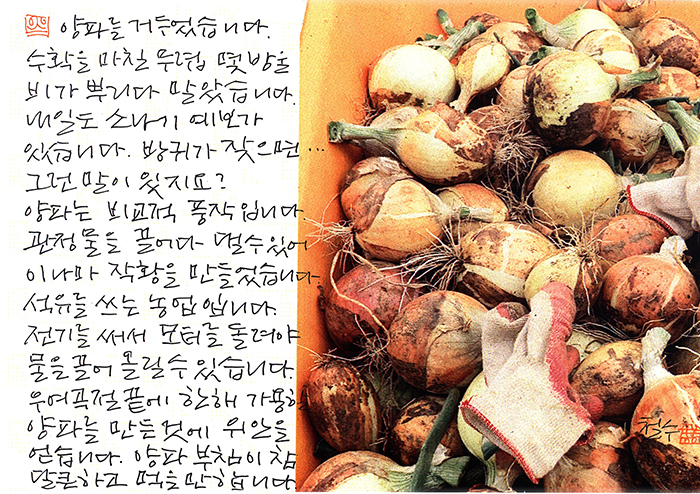 양파를 거두었습니다.
수확을 마칠 무렵 몇 방울
비가 뿌리다 말았습니다.
내일도 소나기 예보가
있습니다. 방귀가 잦으면…
그런 말이 있지요?
양파는 비교적 풍작입니다.
관정물을 끌어다 댈 수 있어
이나마 작황을 만들었습니다.
석유를 쓰는 농업입니다.
전기를 써서 모터를 돌려야
물을 끌어 올릴 수 있습니다.
우여곡절 끝에 한해 가용할
양파를 만든 것에 위안을
얻습니다. 양파 부침이 참
달큰하고 먹을 만 합니다
철수